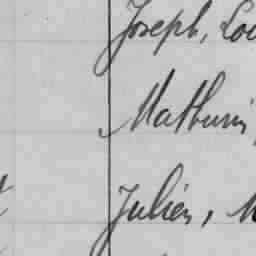 Joseph, Lou
Mathurin,
Julien, M